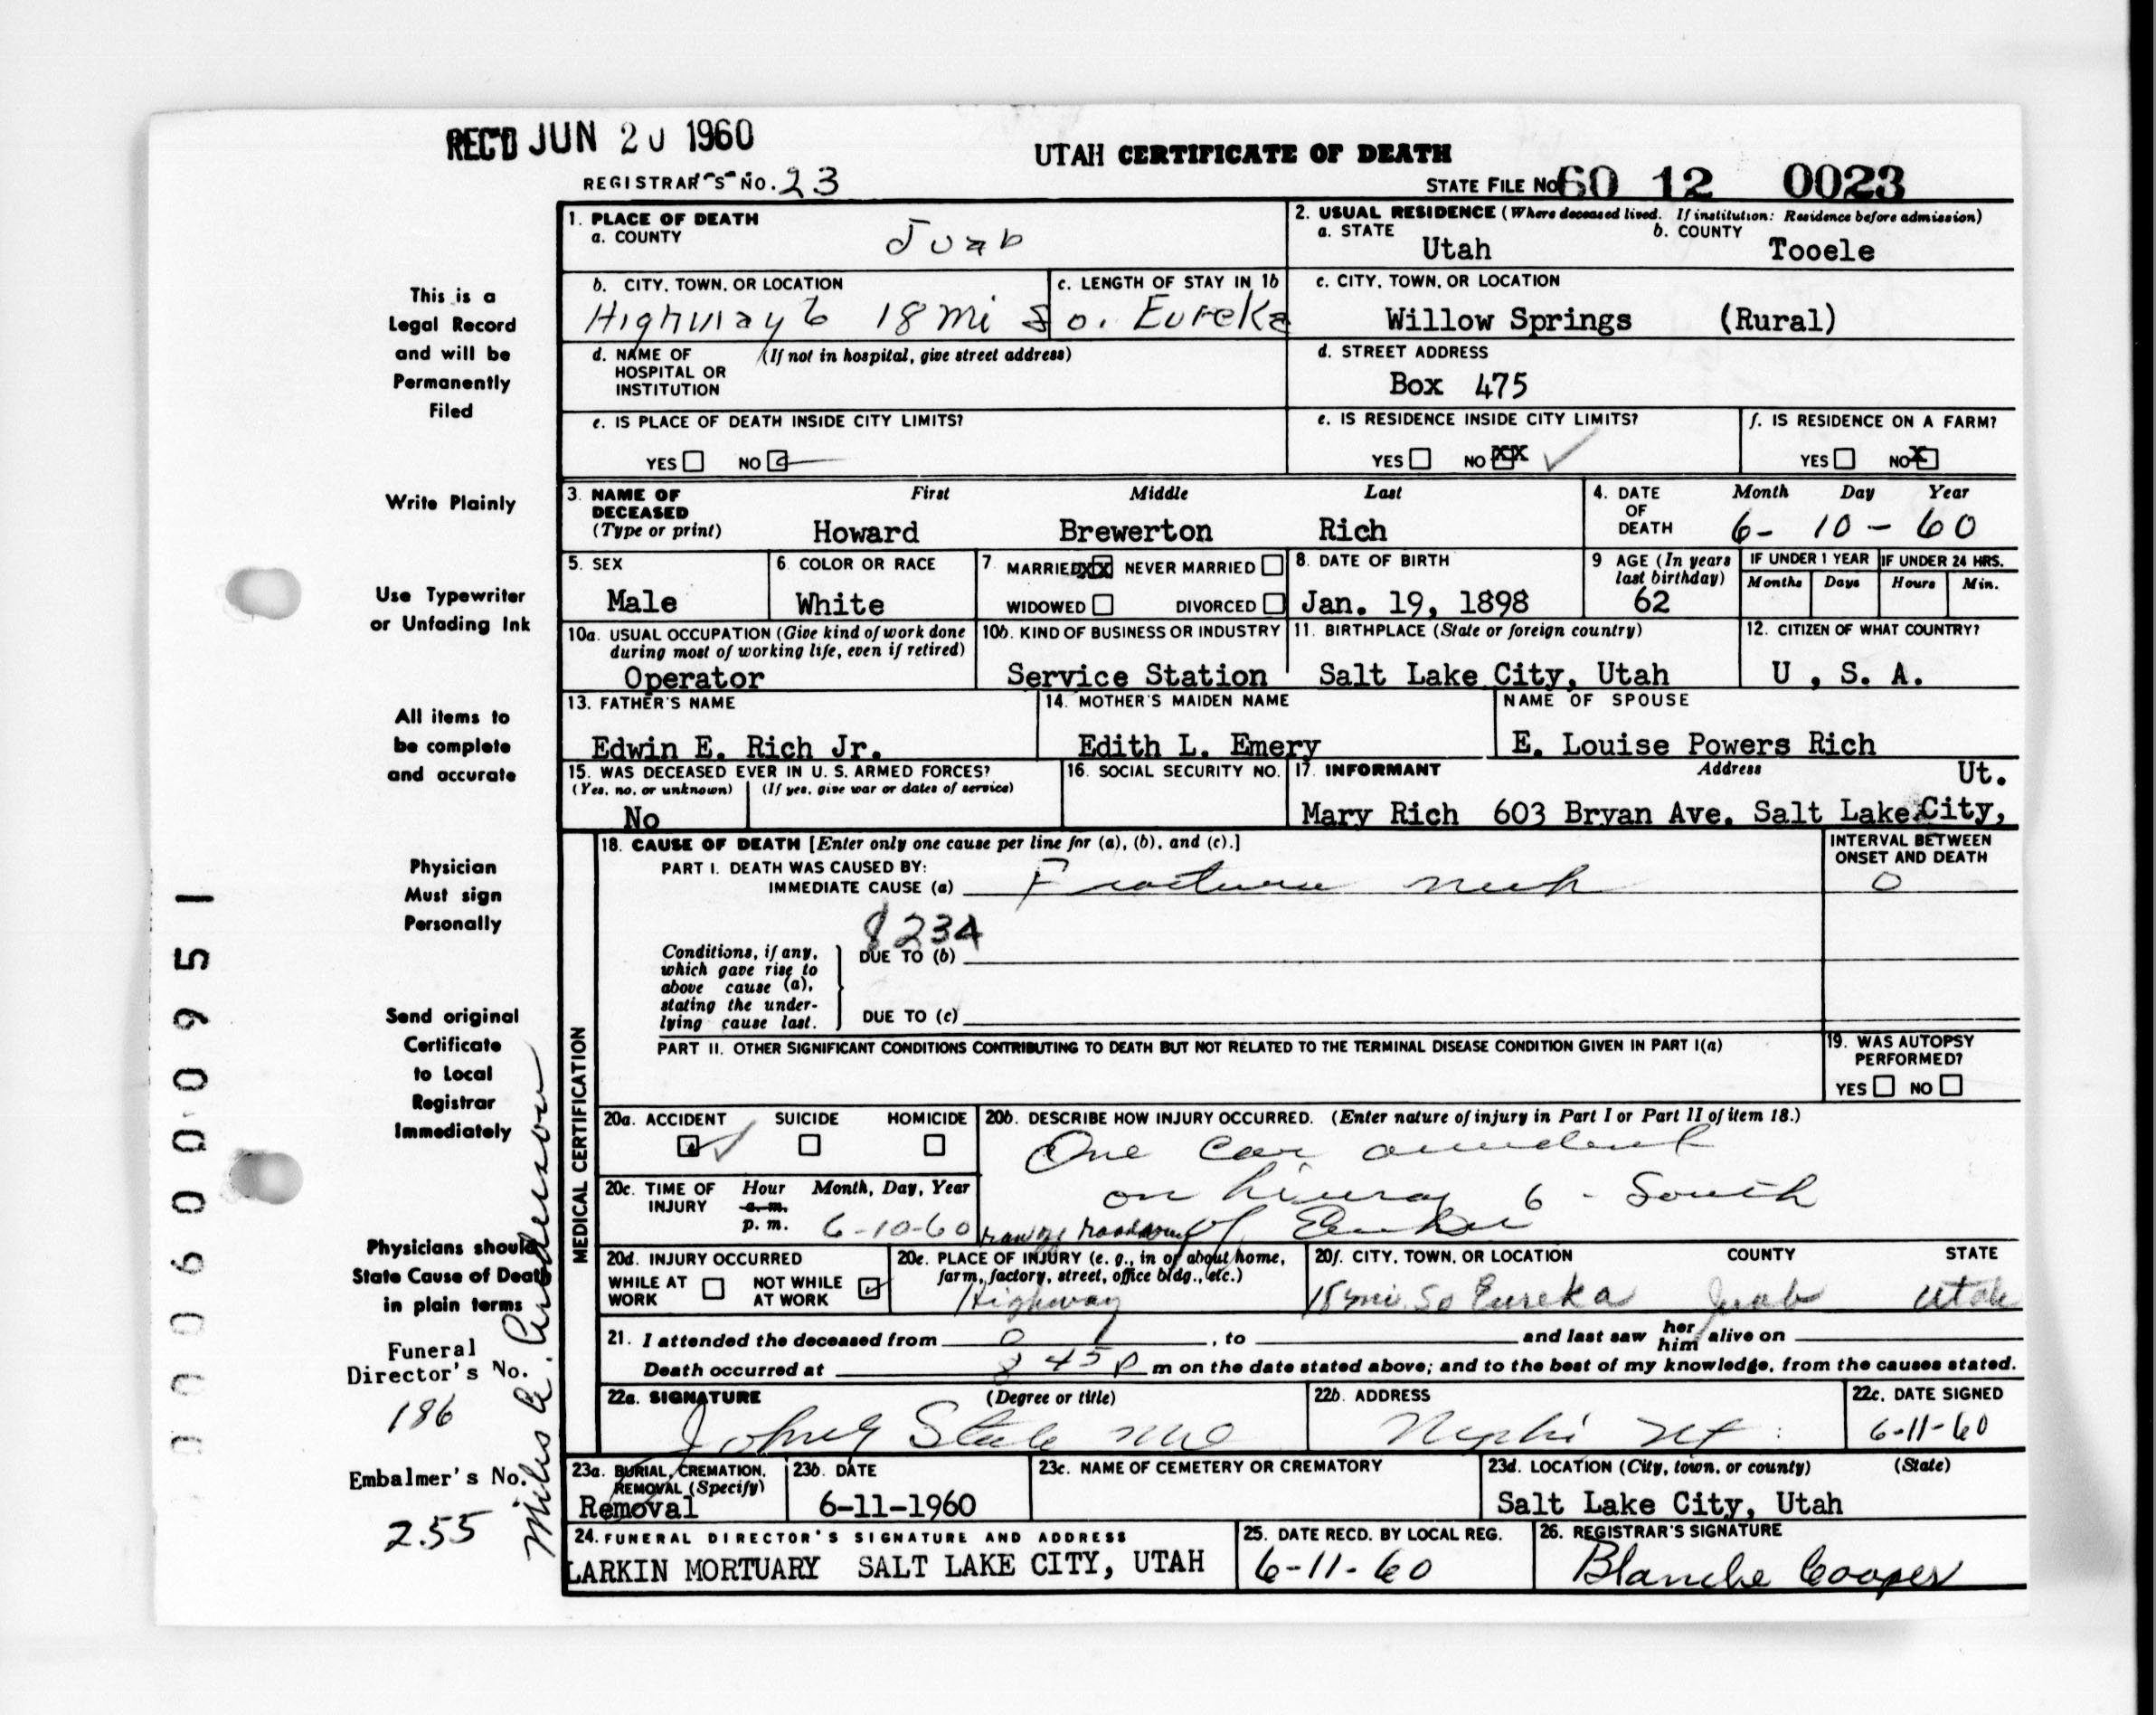 REC'D JUN 20 1960
UTAH CERTIFICATE OF DEATH
REGISTRAR'S NO. 23
STATE FILE NO. 60 12 0023
1. PLACE OF DEATH
a. COUNTY
Juab
2. USUAL RESIDENCE (Where deceased lived. If institution: Residence before admission)
a. STATE
Utah
b. COUNTY
Tooele
b. CITY, TOWN, OR LOCATION
c. LENGTH OF STAY IN 1b
Highway 6 18 mi So. Eureka
c. CITY, TOWN, OR LOCATION
Willow Springs (Rural)
d. NAME OF HOSPITAL OR INSTITUTION
(If not in hospital, give street address)
d. STREET ADDRESS
Box 475
e. IS PLACE OF DEATH INSIDE CITY LIMITS?
YES NO
e. IS RESIDENCE INSIDE CITY LIMITS?
YES NO XX
f. IS RESIDENCE ON A FARM?
YES NO X
3. NAME OF DECEASED
(Type or print)
First Middle Last
Howard Brewerton Rich
4. DATE OF DEATH
Month Day Year
6- 10 - 60
5. SEX
Male
6. COLOR OR RACE
White
7. MARRIED XX NEVER MARRIED
WIDOWED DIVORCED
8. DATE OF BIRTH
Jan. 19, 1898
9 AGE (In years last birthday)
62
IF UNDER 1 YEAR
Months Days
IF UNDER 24 HRS.
Hours Min.
10a. USUAL OCCUPATION (Give kind of work done during most of working life, even if retired)
Operator
10b. KIND OF BUSINESS OR INDUSTRY
Service Station
11. BIRTHPLACE (State or foreign country)
Salt Lake City, Utah
12. CITIZEN OF WHAT COUNTRY?
U , S. A.
13. FATHER'S NAME
Edwin E. Rich Jr.
14. MOTHER'S MAIDEN NAME
Edith L. Emery
NAME OF SPOUSE
E. Louise Powers Rich
15. WAS DECEASED EVER IN U. S. ARMED FORCES?
(Yes, no, or unknown) (If yes, give war or dates of service)
No
16. SOCIAL SECURITY NO.
17. INFORMANT Address
Ut.
Mary Rich 603 Bryan Ave. Salt Lake City,
MEDICAL CERTIFICATION
18. CAUSE OF DEATH [Enter only one cause per line for (a), (b), and (c).]
PART I. DEATH WAS CAUSED BY:
IMMEDIATE CAUSE (a) Fracture neck
INTERVAL BETWEEN ONSET AND DEATH
0
8234
Conditions, if any, which gave rise to above cause (a), stating the underlying cause last.
DUE TO (b)
DUE TO (c)
PART II. OTHER SIGNIFICANT CONDITIONS CONTRIBUTING TO DEATH BUT NOT RELATED TO THE TERMINAL DISEASE CONDITION GIVEN IN PART I(a)
19. WAS AUTOPSY PERFORMED?
YES NO
20a. ACCIDENT SUICIDE HOMICIDE
20b. DESCRIBE HOW INJURY OCCURRED. (Enter nature of injury in Part I or Part II of item 18.)
One car accident
on hiway 6 - South
of Eureka
20c. TIME OF INJURY
Hour Month, Day, Year
a. m.
p. m. 6-10-60
20d. INJURY OCCURRED
WHILE AT WORK
NOT WHILE AT WORK
20e. PLACE OF INJURY (e. g., in or about home, farm, factory, street, office bldg., etc.)
Highway
20f. CITY, TOWN, OR LOCATION COUNTY STATE
18 mi. So Eureka Juab Utah
21. I attended the deceased from 0, to and last saw her him alive on
Death occurred at 8 45 p m on the date stated above; and to the best of my knowledge, from the causes stated.
22a. SIGNATURE (Degree or title)
22b. ADDRESS
Nephi Ut
22c. DATE SIGNED
6-11-60
23a. BURIAL, CREMATION, REMOVAL (Specify)
Removal
23b. DATE
6-11-1960
23c. NAME OF CEMETERY OR CREMATORY
23d. LOCATION (City, town, or county) (State)
Salt Lake City, Utah
24. FUNERAL DIRECTOR'S SIGNATURE AND ADDRESS
LARKIN MORTUARY SALT LAKE CITY, UTAH
25. DATE RECD. BY LOCAL REG.
6-11-60
26. REGISTRAR'S SIGNATURE
Blanche Cooper
This is a
Legal Record
and will be
Permanently
Filed
Write Plainly
Use Typewriter
or Unfading Ink
All items to
be complete
and accurate
Physician
Must sign
Personally
Send original
Certificate
to Local
Registrar
Immediately
Physicians should
State Cause of Death
in plain terms
Funeral
Director's No.
186
Embalmer's No.
255
000600951